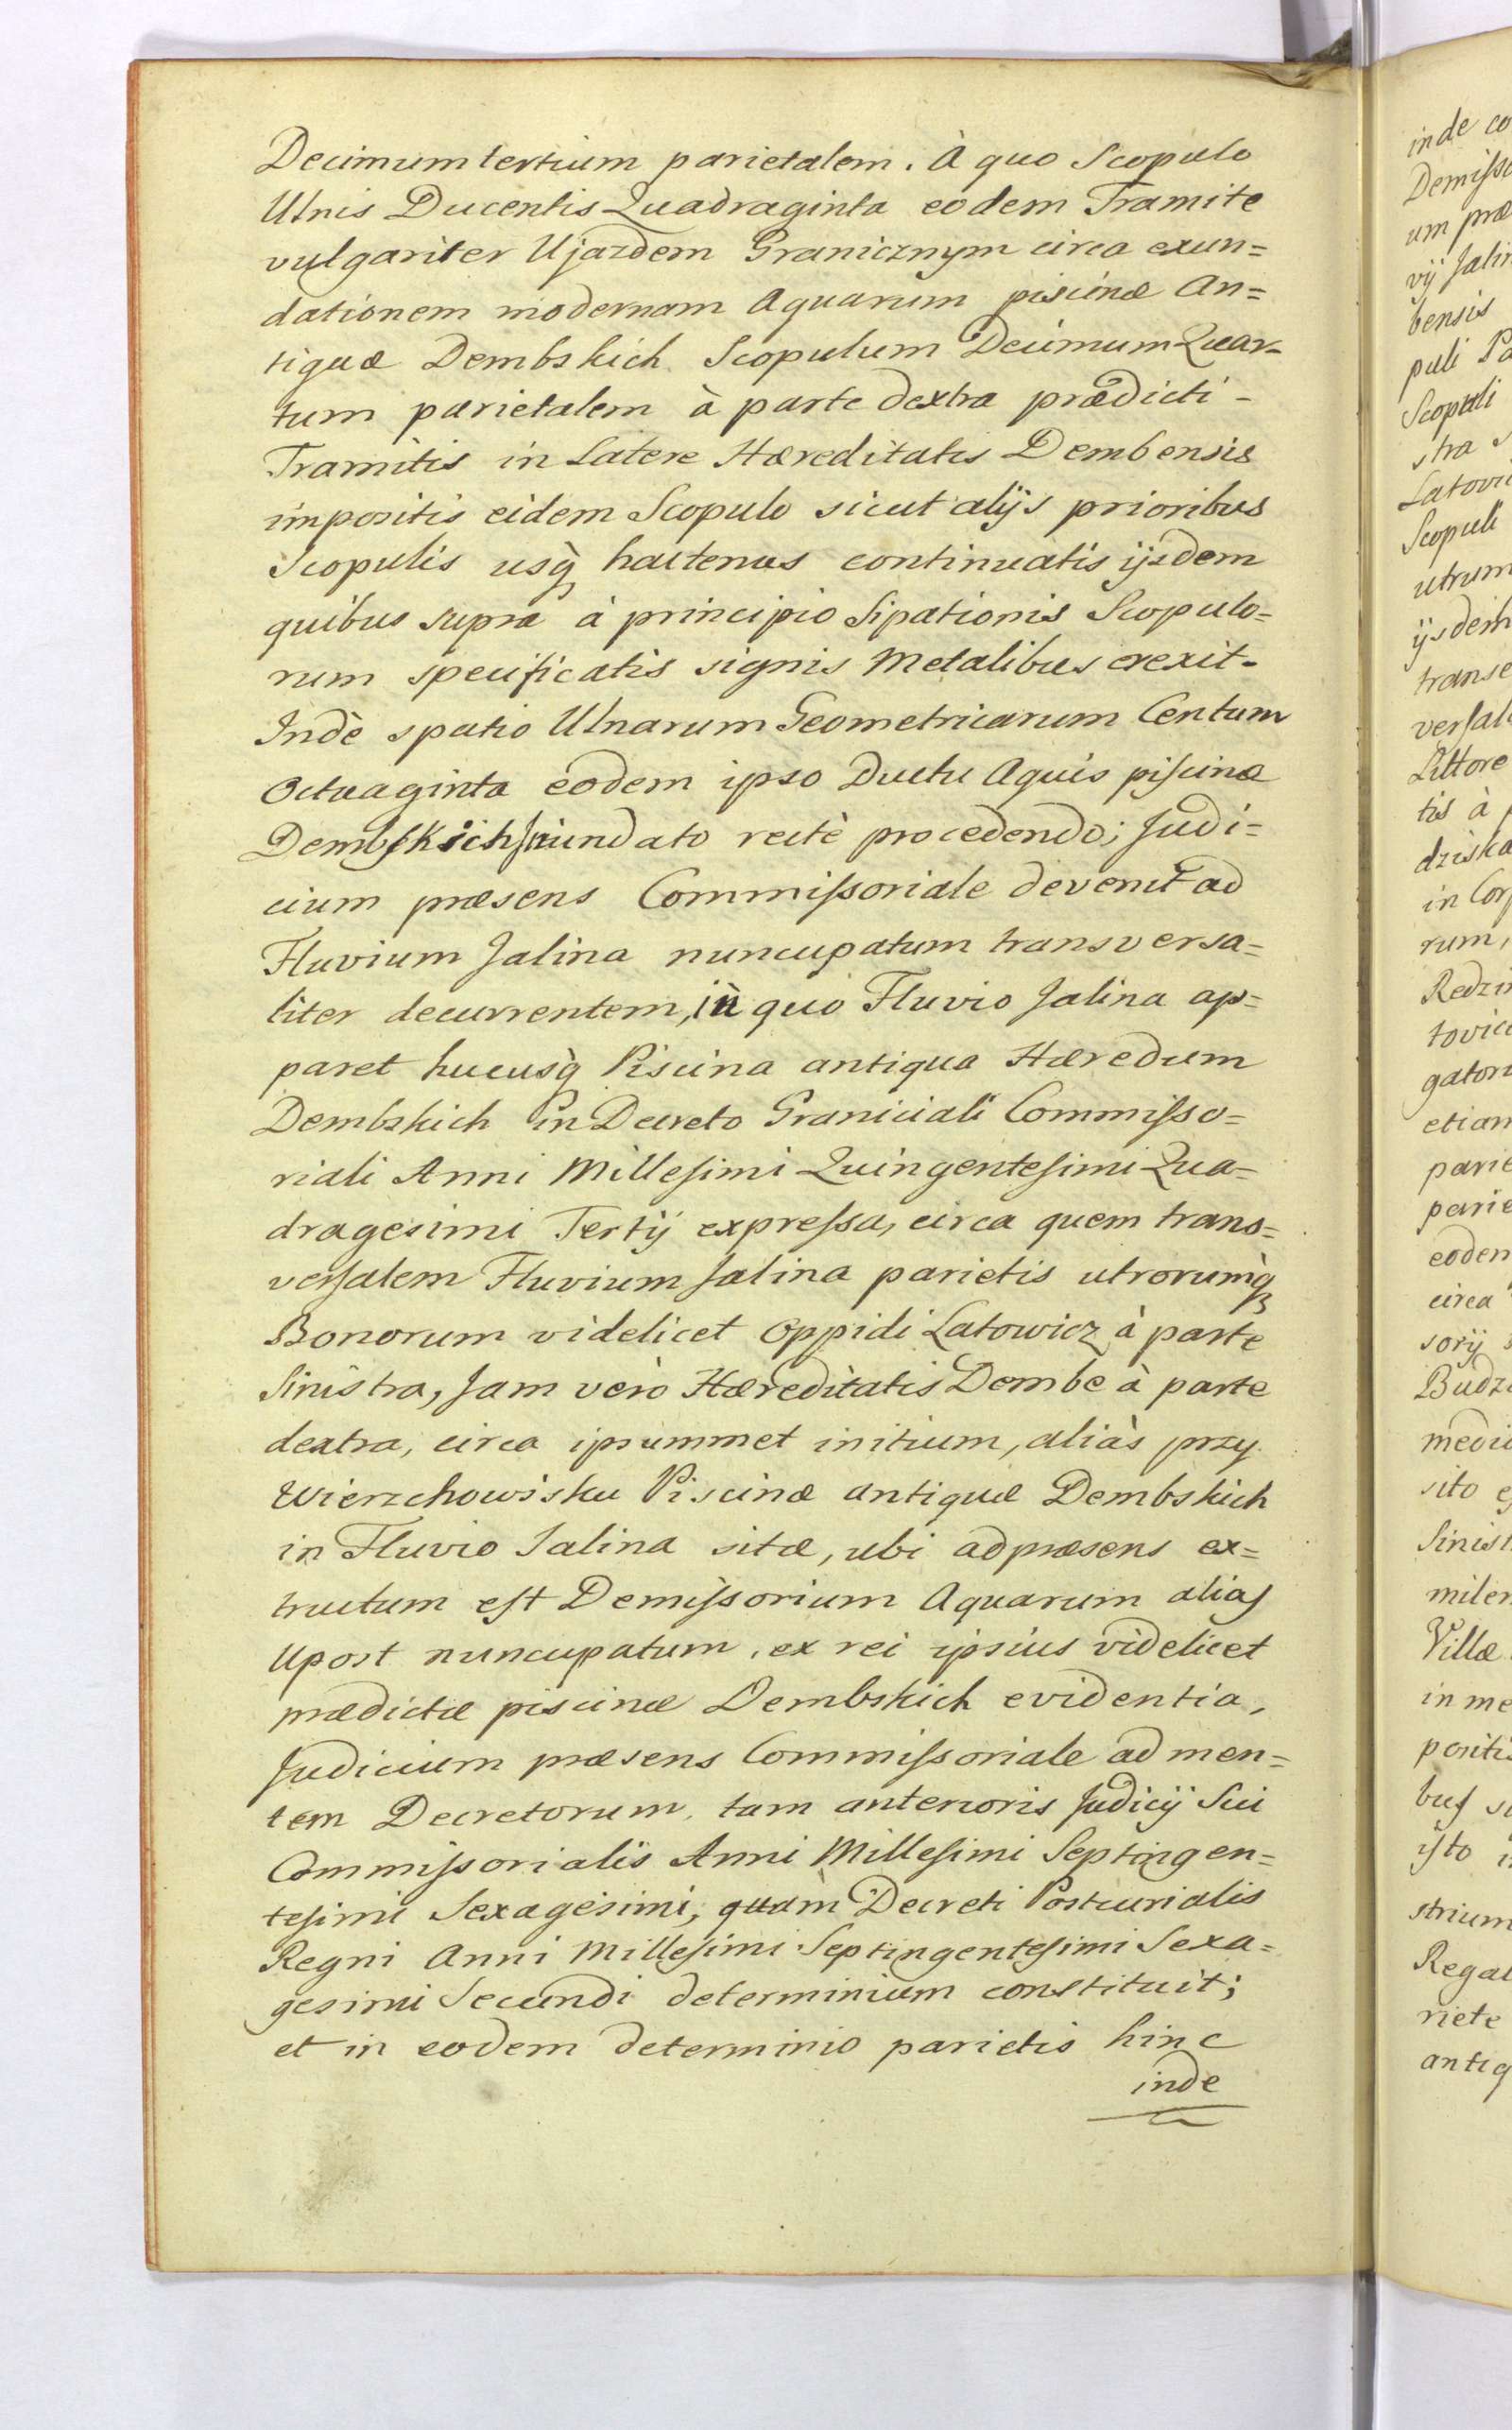 Decimumtertium parietalem. À quo Scopulo
Ulnis Ducentis Quadraginta eodem Tramite
vulgariter Ujazdem Granicznym circa exun=
dationem modernam Aquarum piscinæ An=
tiquæ Dembskich Scopulum Decimum Quar-
tum parietalem à parte dextra prædicti -
Tramitis in Latere Hæreditatis Dembensis
impositis eidem Scopulo sicut alijs prioribus
Scopulis usq̀ hactenus continuatis ijsdem
quibus supra à principio Sipationis Scopulo=
rum specificatis signis Metalibus erexit.
Indè spatio Ulnarum Geometricarum Centum
Octuaginta eodem ipso Ductu Aquis piscinæ
Dembskich inundato rectè procedendo; Judi=
cium præsens Commissoriale devenit ad
Fluvium Jalina nuncupatum transversa=
liter decurrentem, in quo Fluvio Jalina ap=
paret hucusq̀ Piscina antiqua Hæredum
Dembskich in Decreto Graniciali Commisso=
riali Anni Millesimi Quingentesimi Qua=
dragesimi Tertij expressa, circa quem trans=
versalem Fluvium Jalina parietis utrorumq̀
Bonorum videlicet Oppidi Latowicz à parte
Sinistra, Jam verò Hæreditatis Dembe à parte
dextra, circa ipsummet initium, aliàs przy
Wierzchowisku Piscinæ antiquæ Dembskich
in Fluvio Jalina sitæ, ubi ad præsens ex=
tructum est Demissorium Aquarum alias
Upost nuncupatum, ex rei ipsius videlicet
prædictæ piscinæ Dembskich evidentia,
Judicium præsens Commissoriale ad men=
tem Decretorum, tam anterioris Judicij Sui
Commissorialis Anni Millesimi Septingen=
tesimi Sexagesimi, quàm Decreti Postcurialis
Regni Anni Millesimi Septingentesimi Sexa=
gesimi Secundi determinium constituit;
et in eodem determinio parietis hinc
inde
inde co
Demisso
um præ
vij Jalin
bensis
puli Pa
Scopuli
stra S
Latovic
Scopuli
utrum
ijsdem
transe
versal
Littore
tis à p
dziska
in Cor
rum,
Redzin
tovic
gator
etiam
parie
parie
eodem
circa
sorij s
Budz
mediu
sito e
Sinist
milem
Villæ
in me
positis
bus su
isto i
strium
Regal
riete
antiq